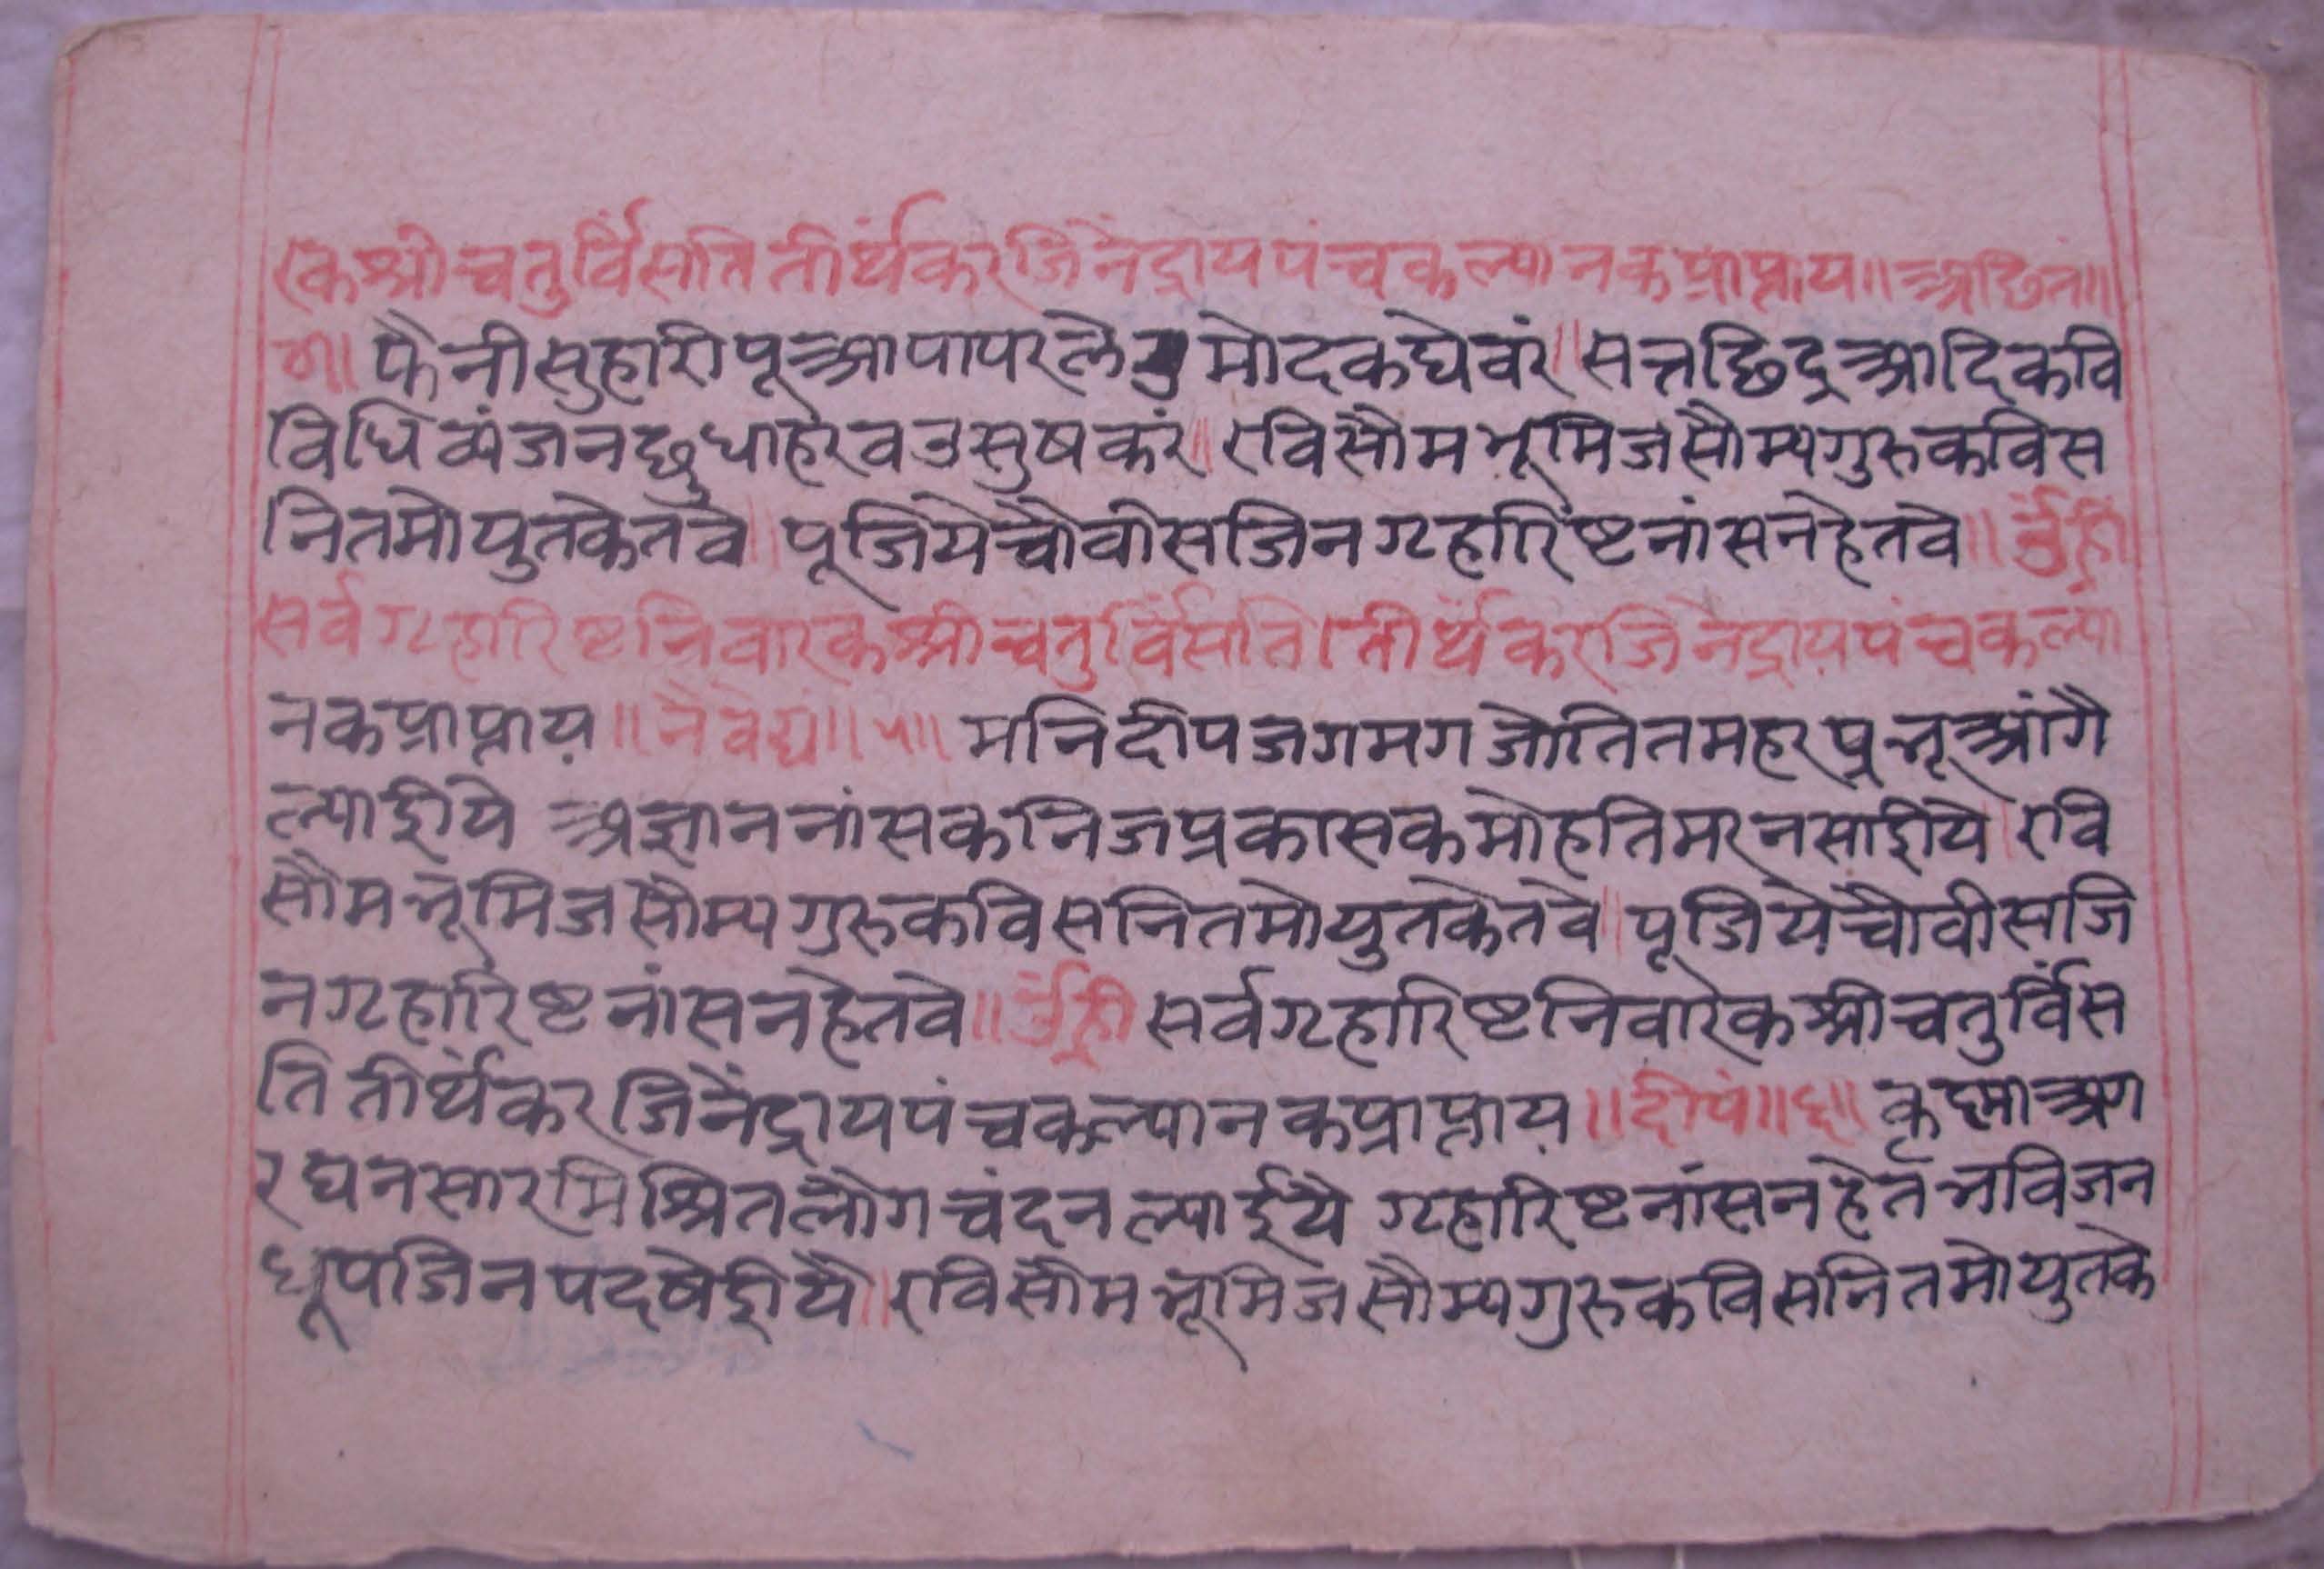 रकश्रीचतुर्विंसति तीर्थंकरजिनेंद्रायपंचकल्यानकप्राप्ताय॥अछित॥
फैनीसुहारीपूआपापरले मोदकघेवरं॥सतछिद्रआदिकवि
विधिव्यंजनछुधाहरवउसुषकरं॥रविसौमभूमिजसौम्यगुरुकविस
नितमोयुतकेतवे॥पूजियेचौवीसजिनग्रहारिष्टनांसनहेतवे॥ॐह्रीं
सर्वग्रहारिष्टनिवारकश्रीचतुर्विंसतितीर्थंकरजिनेंद्रायपंचकल्या
नकप्राप्ताय॥नैवेद्यं॥५॥मनिदीपजगमगजोतितमहरप्रभूआंगै
ल्याईये अज्ञाननांसकनिजप्रकासकमोहतिमरनसाईये॥रवि
सौमभूमिजसौम्यगुरुकविसनितमोयुतकेतवे॥पूजियेचौवीसजि
नग्रहारिष्टनांसनहेतवे॥ॐह्रीसर्वग्रहारिष्टनिवारकश्रीचतुर्विंस
तितीर्थंकरजिनेंद्रायपंचकल्यानकप्राप्ताय॥दीपं॥६॥कृष्माअग
रघनसारमिश्रितलौंगचंदनल्याईये ग्रहारिष्टनांसनहेतभविजन
धूपजिनपदषेईयै॥रविसौमभूमिजसौम्यगुरुकविसनितमोयुतके